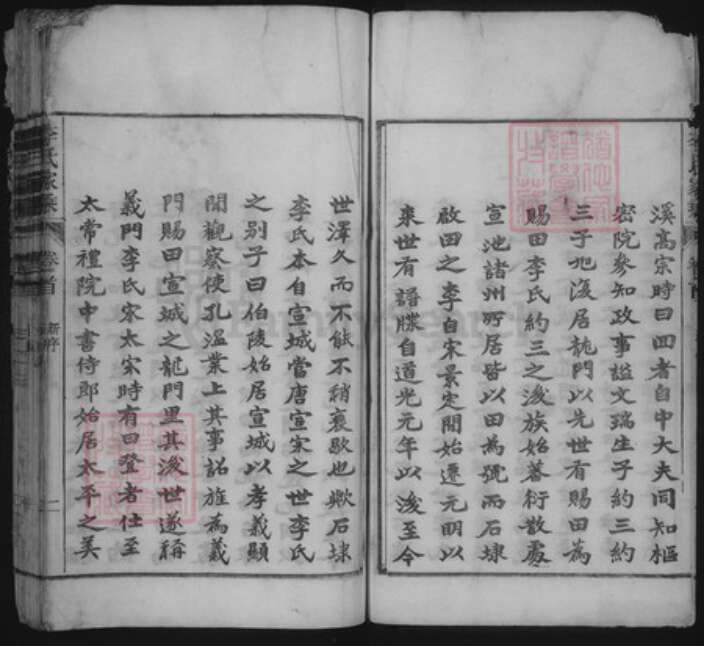 溪高宗時曰四者自中大夫同知樞
密院參知政事謚文瑞生子約三約
三子旭復居龍門以先世有賜田為
賜田李氏約三之後族始蕃衍散處
宣池諸州所居皆以田為號而石埭
啟田之李自宋景定開始遷元明以
來世有譜牒自道光元年以後至今
世澤久而不不稍衰歇也歟石埭
李氏本自宣城當唐宣宗之世李氏
之別子曰伯陵始居宣城以孝義顯
聞觀察使孔溫業上其事詔旌為義
門賜田宣城之龍門里其後世遂稱
義門李氏宋太宗時有曰登者仕至
太常禮院中書侍郎始居太平之美
李氏家乘
卷首
新序
二